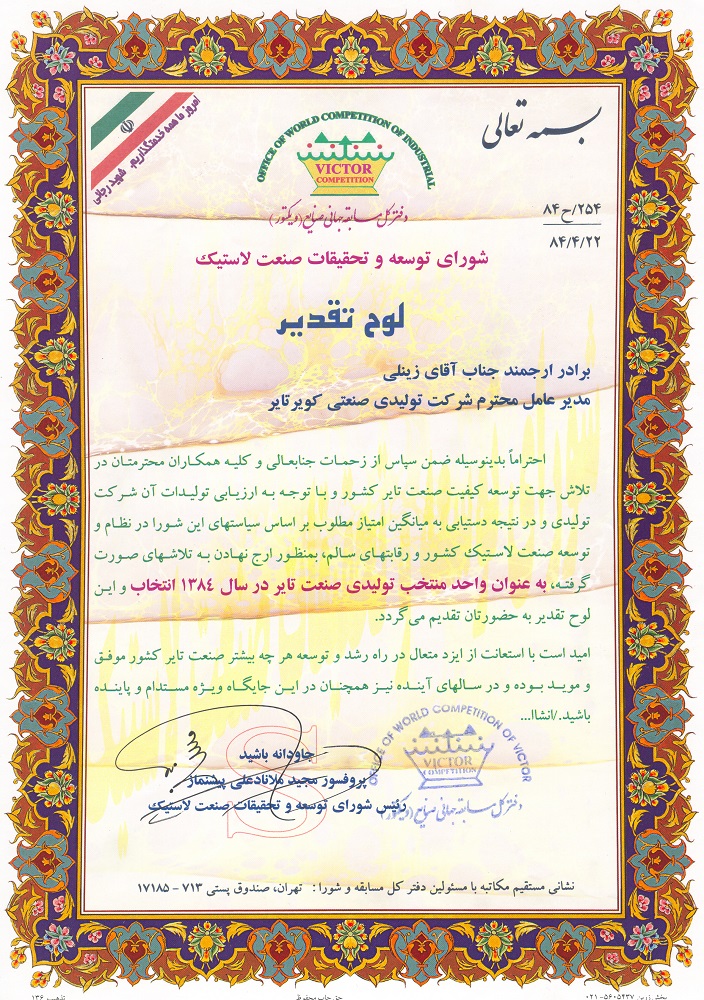 بسمه تعالی
امروز ما همه خدمتگذاریم. شهید رجایی
OFFICE OF WORLD COMPETITION OF INDUSTRIAL
VICTOR
COMPETITION
دفتر کل مسابقه جهانی صنایع (ویکتور)
۲۵۴/ح/۸۴
۸۴/۴/۲۲
شورای توسعه و تحقیقات صنعت لاستیک
لوح تقدیر
برادر ارجمند جناب آقای زینلی
مدیر عامل محترم شرکت تولیدی صنعتی کویرتایر
احتراماً بدینوسیله ضمن سپاس از زحمات جنابعالی و کلیه همکاران محترمتان در
تلاش جهت توسعه کیفیت صنعت تایر کشور و با توجه به ارزیابی تولیدات آن شرکت
تولیدی و در نتیجه دستیابی به میانگین امتیاز مطلوب بر اساس سیاستهای این شورا در نظام و
توسعه صنعت لاستیک کشور و رقابتهای سالم، بمنظور ارج نهادن به تلاشهای صورت
گرفته، به عنوان واحد منتخب تولیدی صنعت تایر در سال ۱۳۸۴ انتخاب و این
لوح تقدیر به حضورتان تقدیم می‌گردد.
امید است با استعانت از ایزد متعال در راه رشد و توسعه هر چه بیشتر صنعت تایر کشور موفق
و موید بوده و در سالهای آینده نیز همچنان در این جایگاه ویژه مستدام و پاینده
باشید./انشاا...
OFFICE OF WORLD COMPETITION OF VICTOR
VICTOR
COMPETITION
دفتر کل مسابقه جهانی صنایع (ویکتور)
جاودانه باشید
پروفسور مجید ملانادعلی پیشنماز
رئیس شورای توسعه و تحقیقات صنعت لاستیک
نشانی مستقیم مکاتبه با مسئولین دفتر کل مسابقه و شورا : تهران، صندوق پستی ۷۱۳ - ۱۷۱۸۵
پخش زرین ۵۶۰۵۴۳۷-۰۲۱
حق چاپ محفوظ
تذهیب ۱۳۶